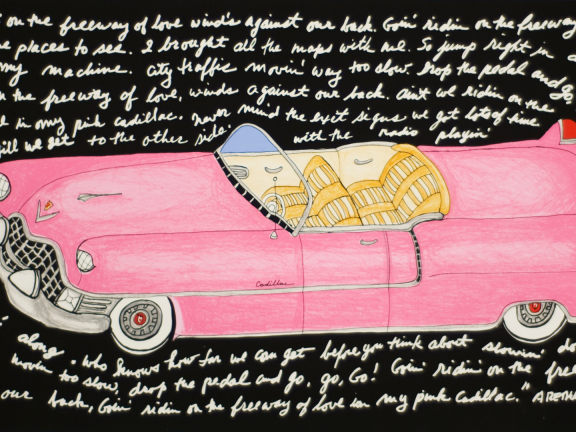 on the freeway of love wind's against our back. Goin' ridin on the freeway
places to see. I brought all the maps with me. So jump right in
my machine. city traffic movin' way too slow. drop the pedal and go,
the freeway of love, winds against our back. aint we ridin on the
in my pink cadillac. never mind the exit signs we got lots of time
till we get to the other side. with the radio playin'
Cadillac
along. who knows how far we can get before you think about slowin' do
movin too slow, drop the pedal and go, go, Go! Goin' ridin' on the free
our back, Goin' ridin on the freeway of love in my pink Cadillac." ARETH